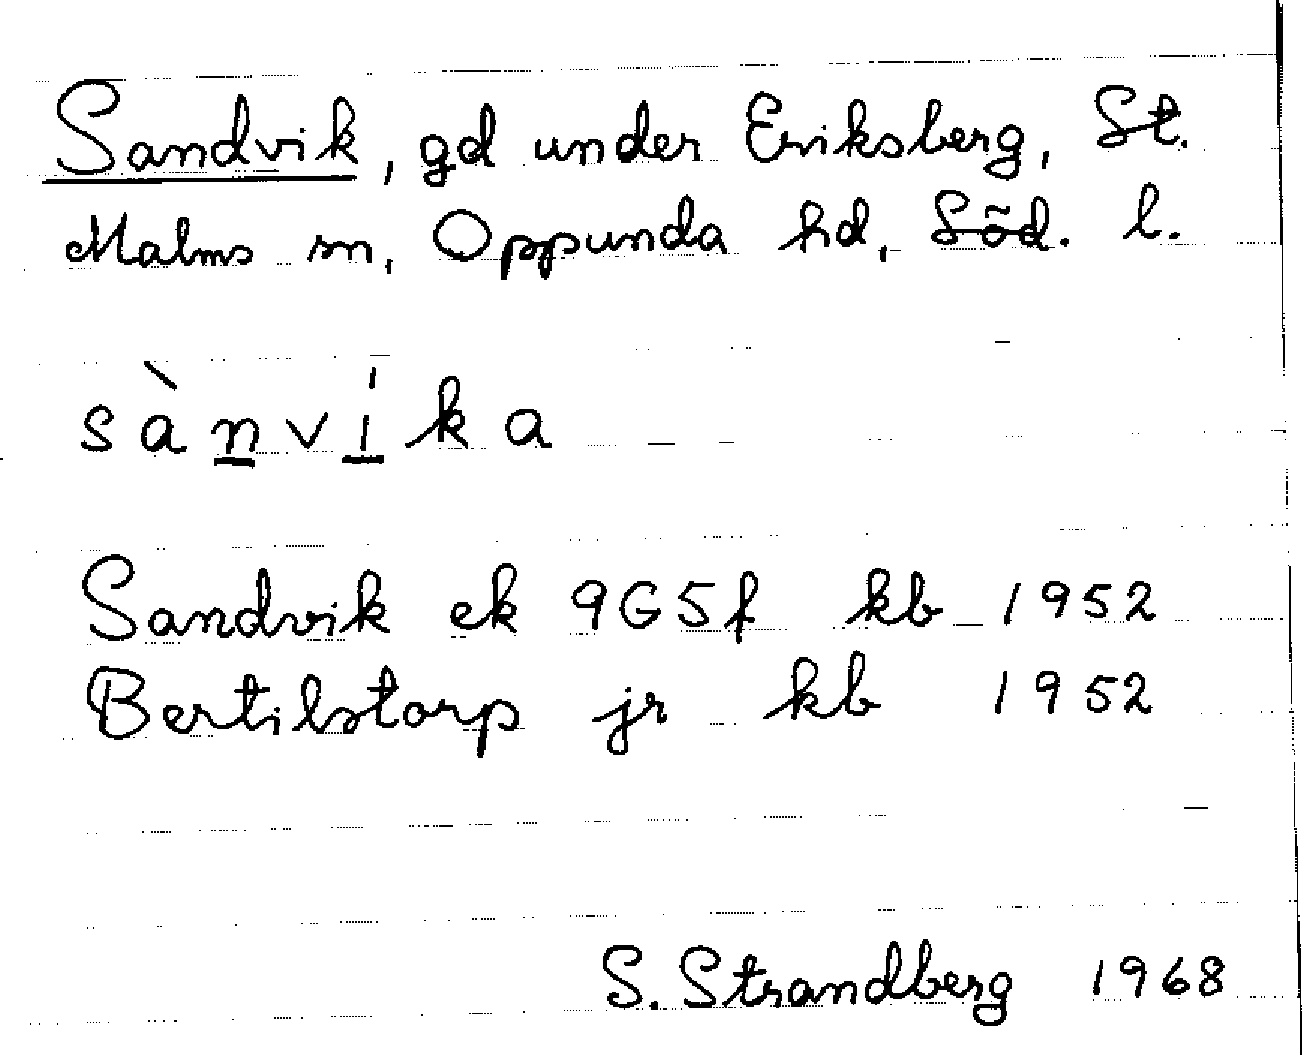 Sandvik, gd under Eriksberg, St.
Malms sn, Oppunda hd, Söd. l.
sànvíka
Sandvik ek 9G5f kb 1952
Bertilstorp jr kb 1952
S. Strandberg 1968